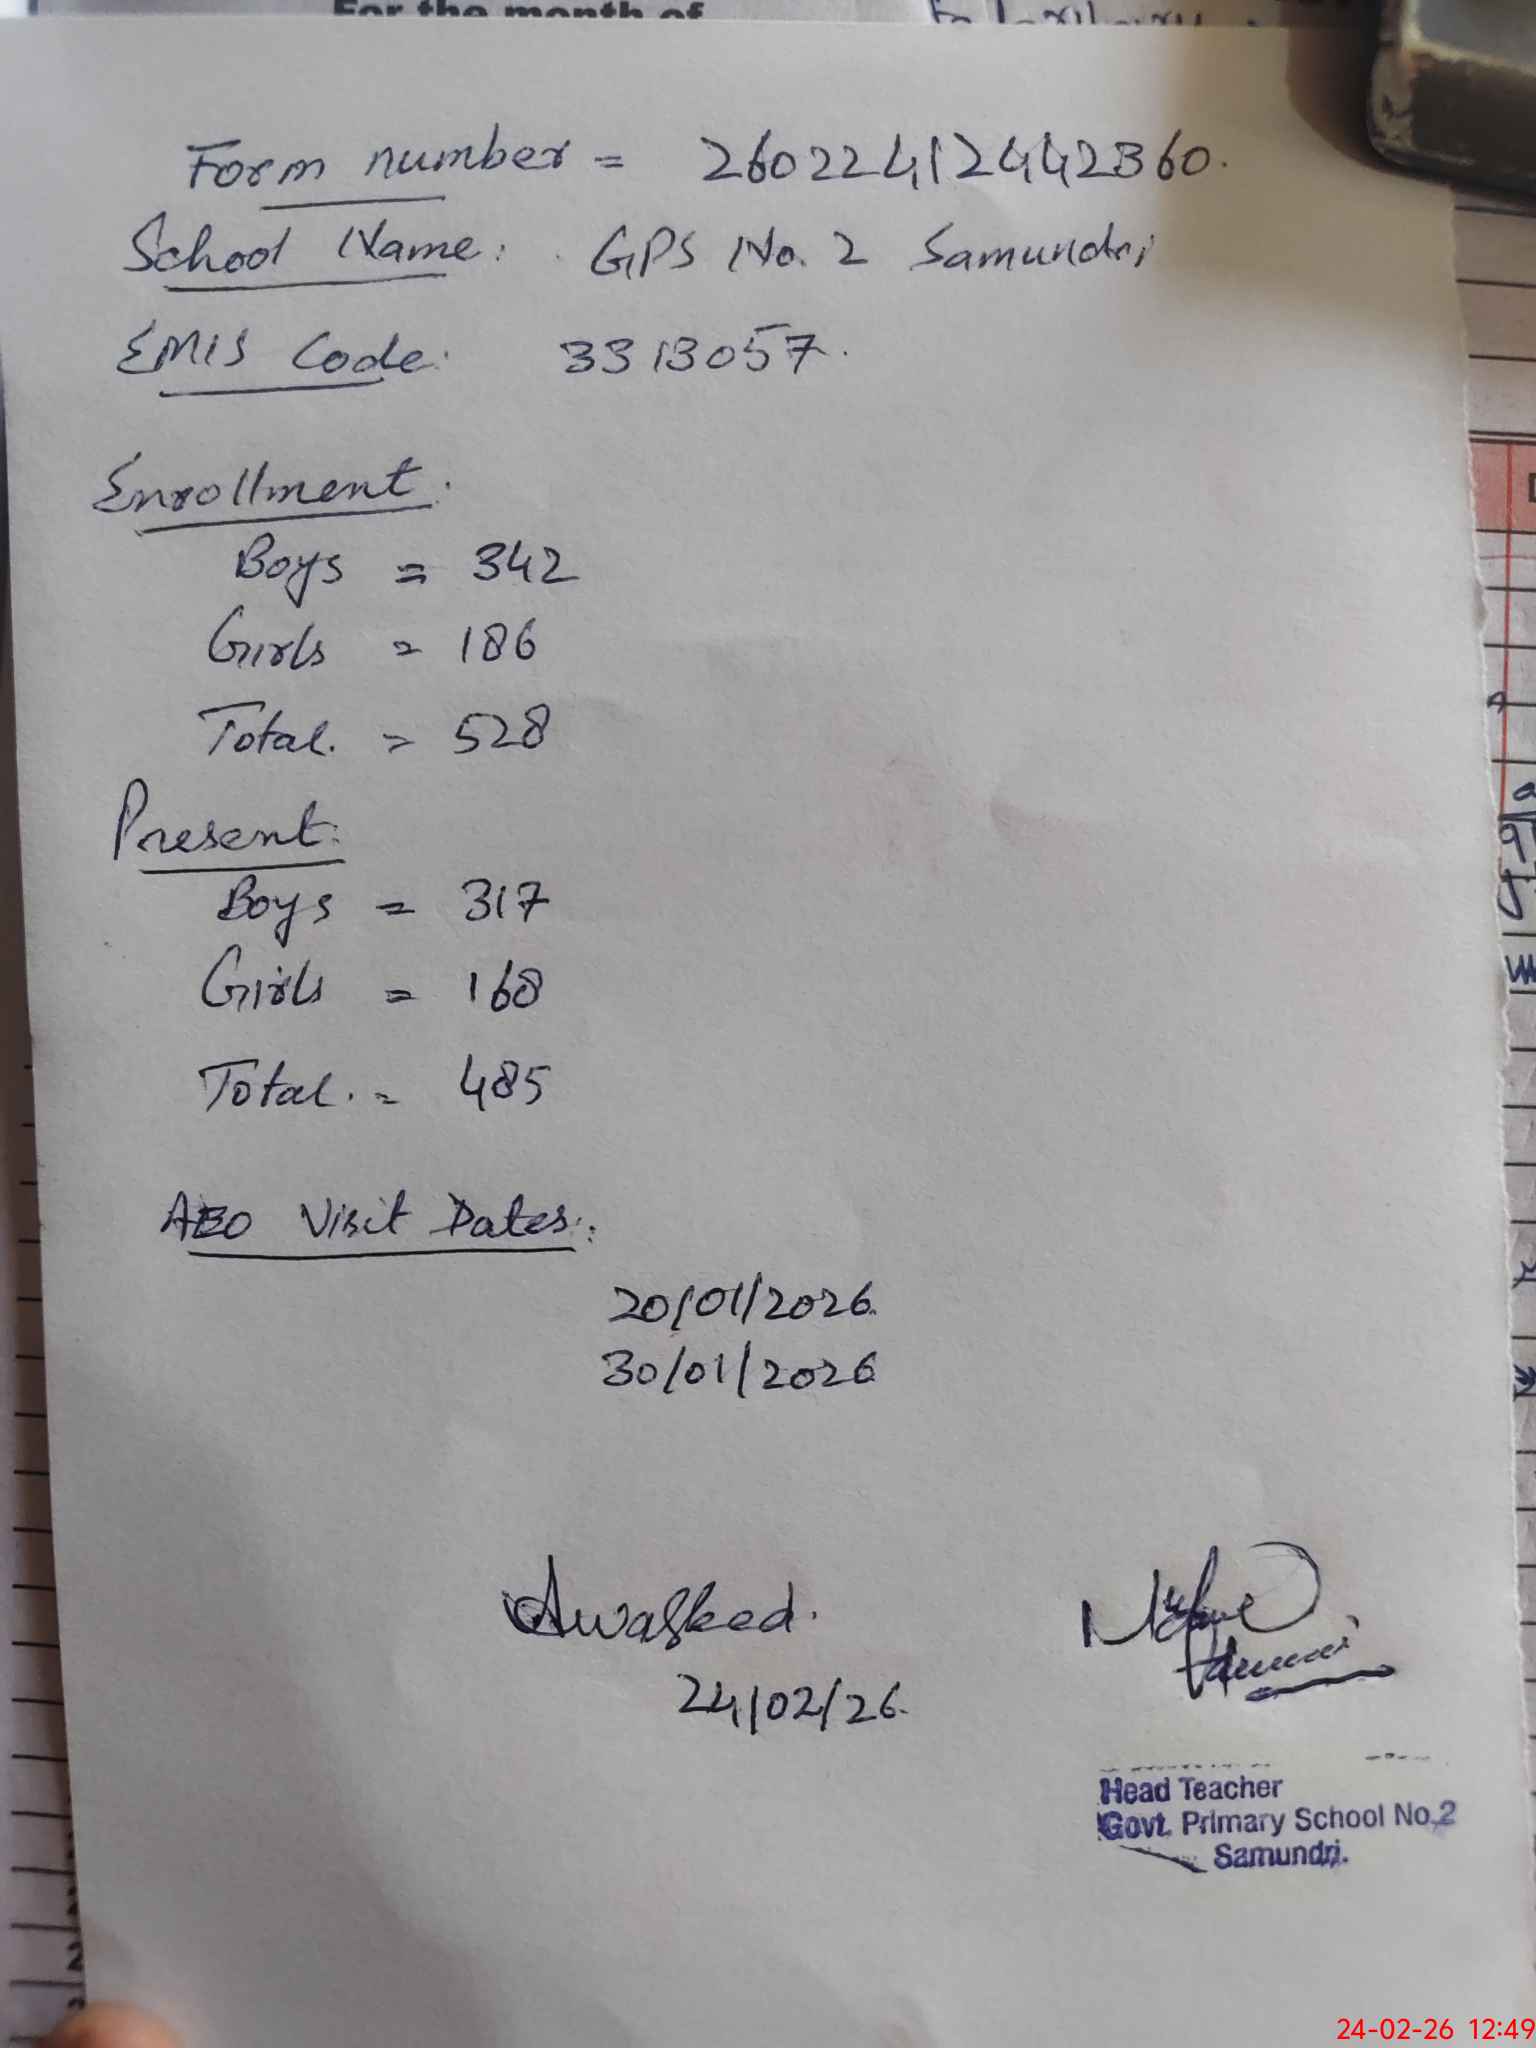 For the month of
Form number = 260224124442360.
School Name: GPS No. 2 Samundri
EMIS Code: 3313057.
Enrollment:
Boys = 342
Girls = 186
Total. = 528
Present:
Boys = 317
Girls = 168
Total. = 485
AEO Visit Dates:
20/01/2026
30/01/2026
24/02/26.
Head Teacher
Govt. Primary School No.2
Samundri.
24-02-26 12:49